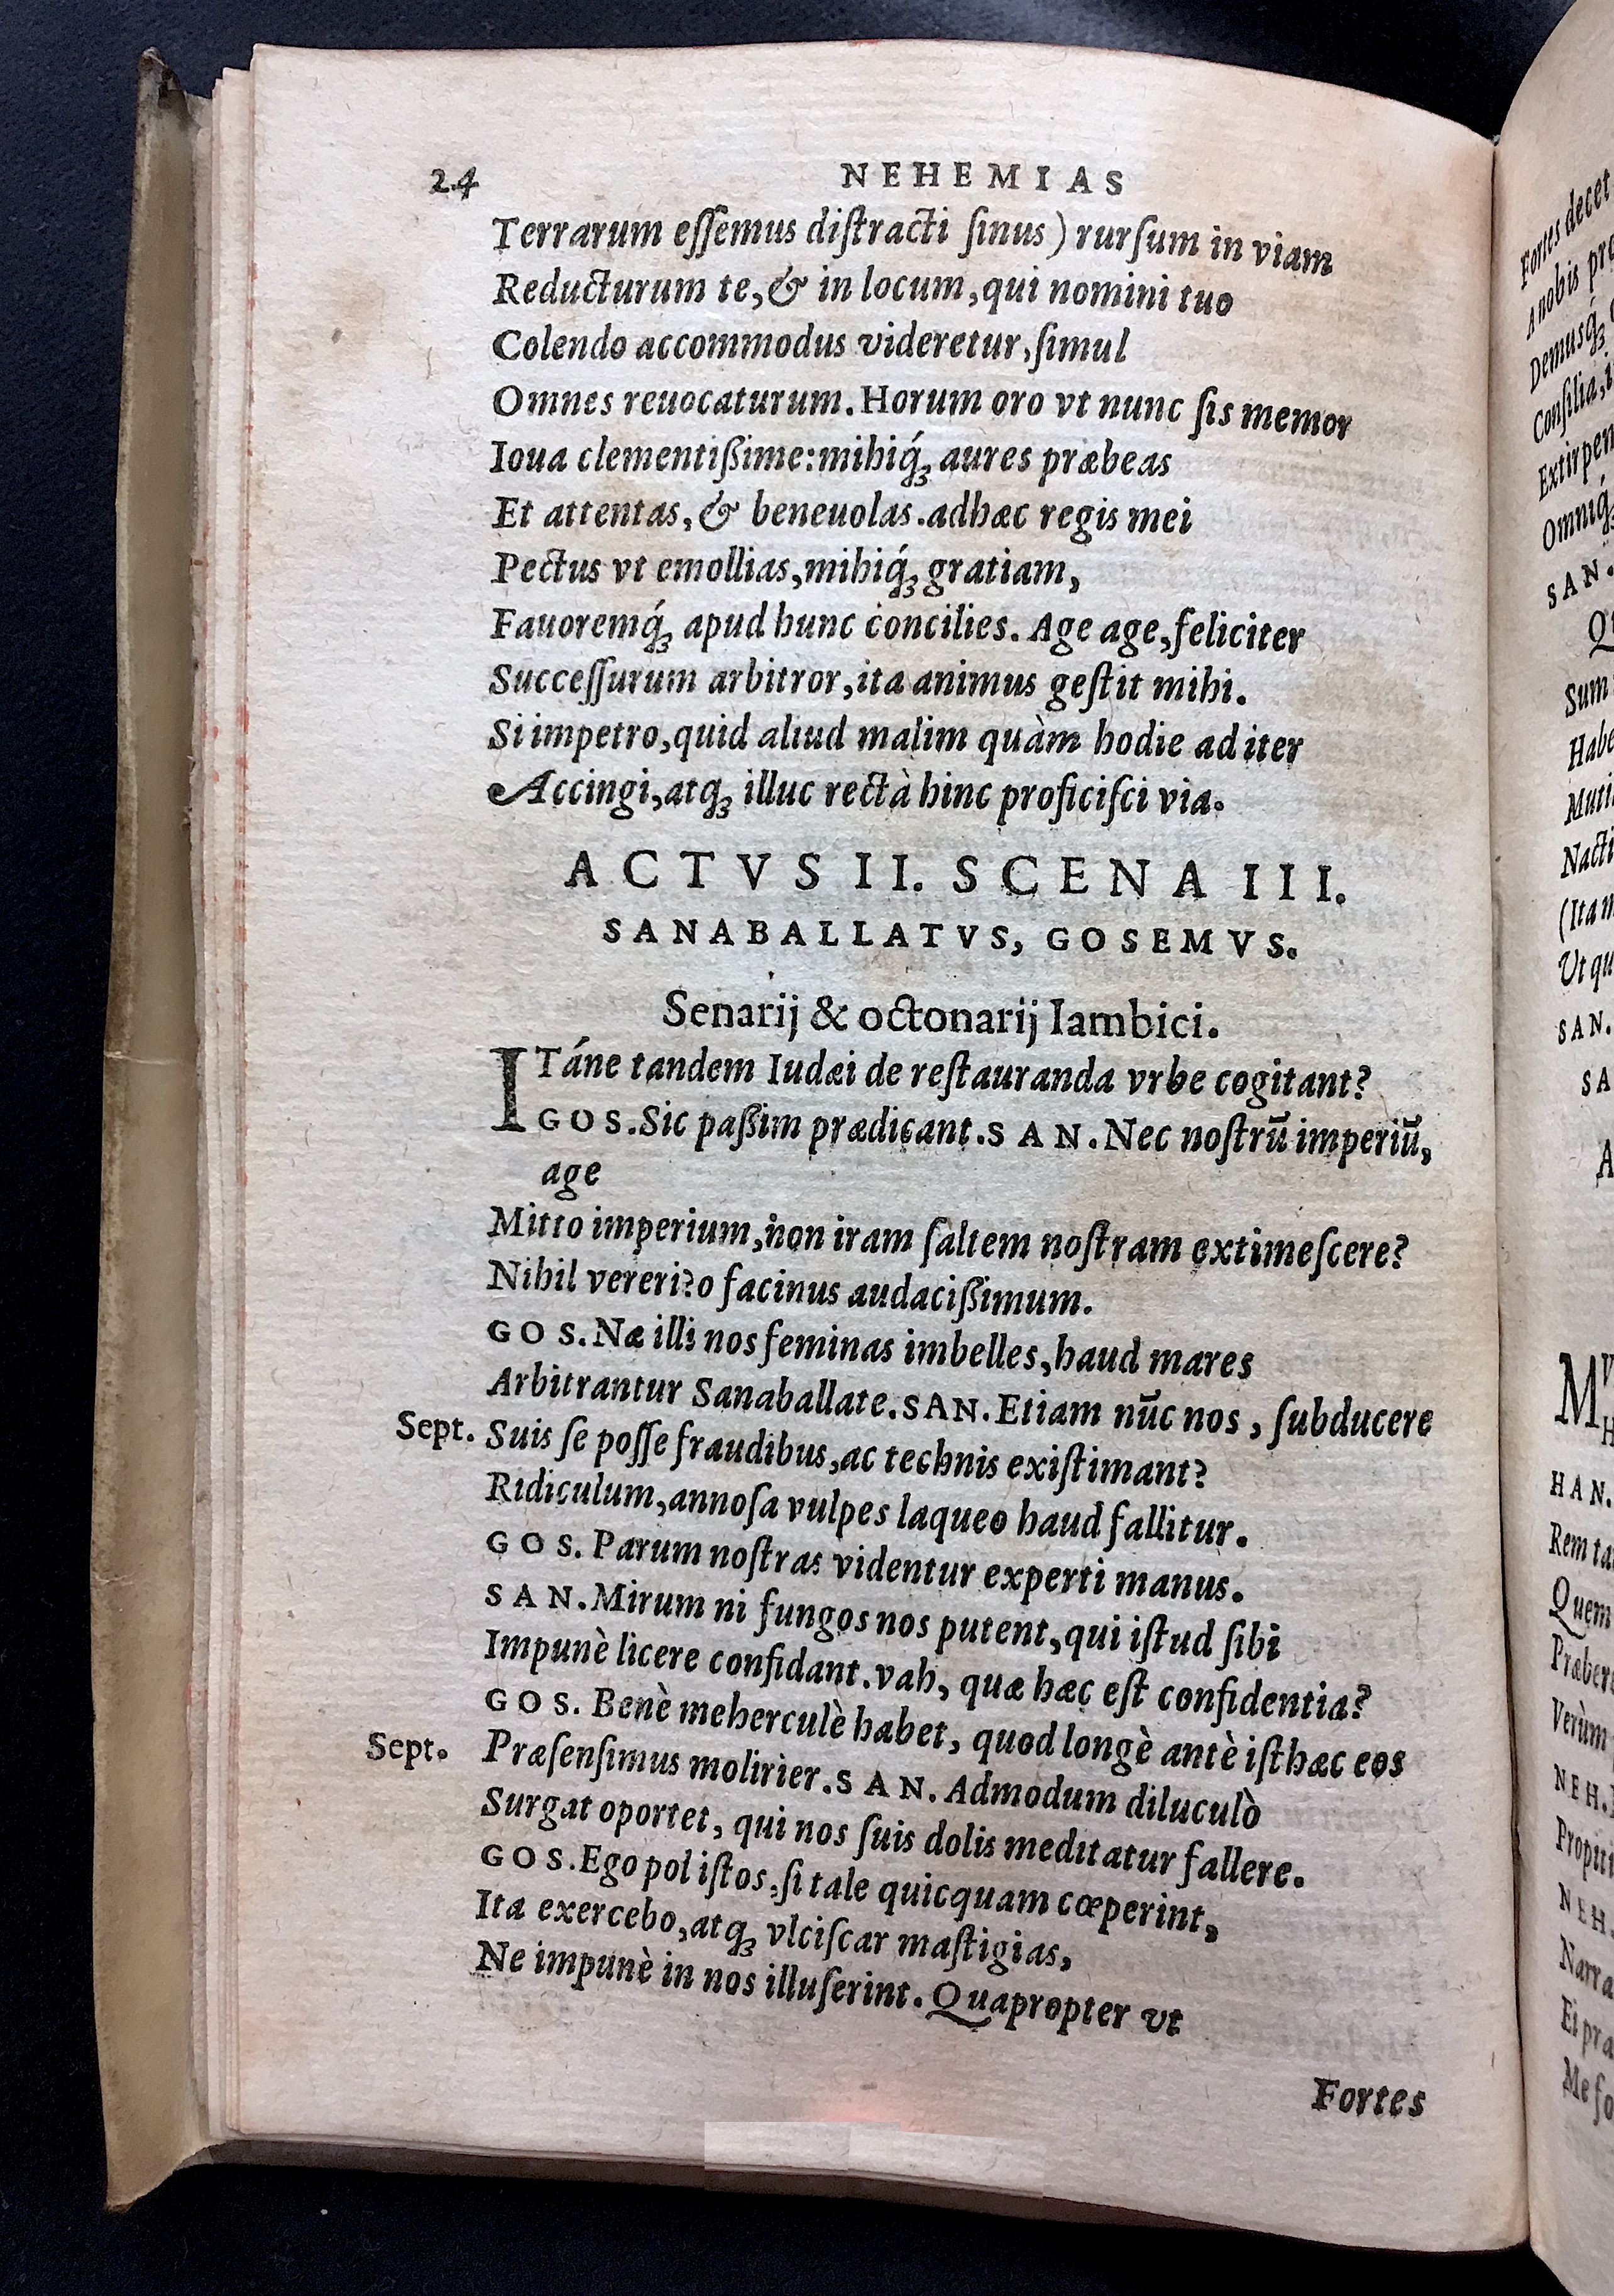 24 NEHEMIAS
Terrarum eſſemus diſtracti ſinus) rurſum in viam
Reducturum te, & in locum, qui nomini tuo
Colendo accommodus videretur, ſimul
Omnes reuocaturum. Horum oro vt nunc ſis memor
Ioua clementißime: mihiq́ꝫ aures præbeas
Et attentas, & beneuolas. adhæc regis mei
Pectus vt emollias, mihiq́ꝫ gratiam,
Fauoremq́ꝫ apud hunc concilies. Age age, feliciter
Succeſſurum arbitror, ita animus geſtit mihi.
Si impetro, quid aliud malim quàm hodie ad iter
Accingi, atqꝫ illuc rectà hinc proficiſci via.
ACTVS II. SCENA III.
SANABALLATVS, GOSEMVS.
Senarij & octonarij Iambici.
ITáne tandem Iudæi de reſtauranda vrbe cogitant?
GOS. Sic paßim prædicant. SAN. Nec noſtrū imperiū,
age
Mitto imperium, non iram ſaltem noſtram extimeſcere?
Nihil vereri? o facinus audacißimum.
GOS. Næ illi nos feminas imbelles, haud mares
Arbitrantur Sanaballate. SAN. Etiam nūc nos, ſubducere
Sept. Suis ſe poſſe fraudibus, ac technis exiſtimant?
Ridiculum, annoſa vulpes laqueo haud fallitur.
GOS. Parum noſtras videntur experti manus.
SAN. Mirum ni fungos nos putent, qui iſtud ſibi
Impunè licere confidant. vah, quæ hæc eſt confidentia?
GOS. Benè meherculè habet, quod longè antè iſthæc eos
Sept. Præſenſimus molirier. SAN. Admodum diluculò
Surgat oportet, qui nos ſuis dolis meditatur fallere.
GOS. Ego pol iſtos, ſi tale quicquam cœperint,
Ita exercebo, atqꝫ vlciſcar maſtigias,
Ne impunè in nos illuſerint. Quapropter vt
Fortes
Fortes decet
A nobis
Demusq́ꝫ
Conſilia,
Extirpen
Omniq́ꝫ
SAN.
Sum
Habe
Nacti
(Ita
Ut qu
SAN.
SA
HAN.
Rem ta
Quem
Præbere
Verùm
NEH.
NEH.
Narra
Ei pra
Me ſo